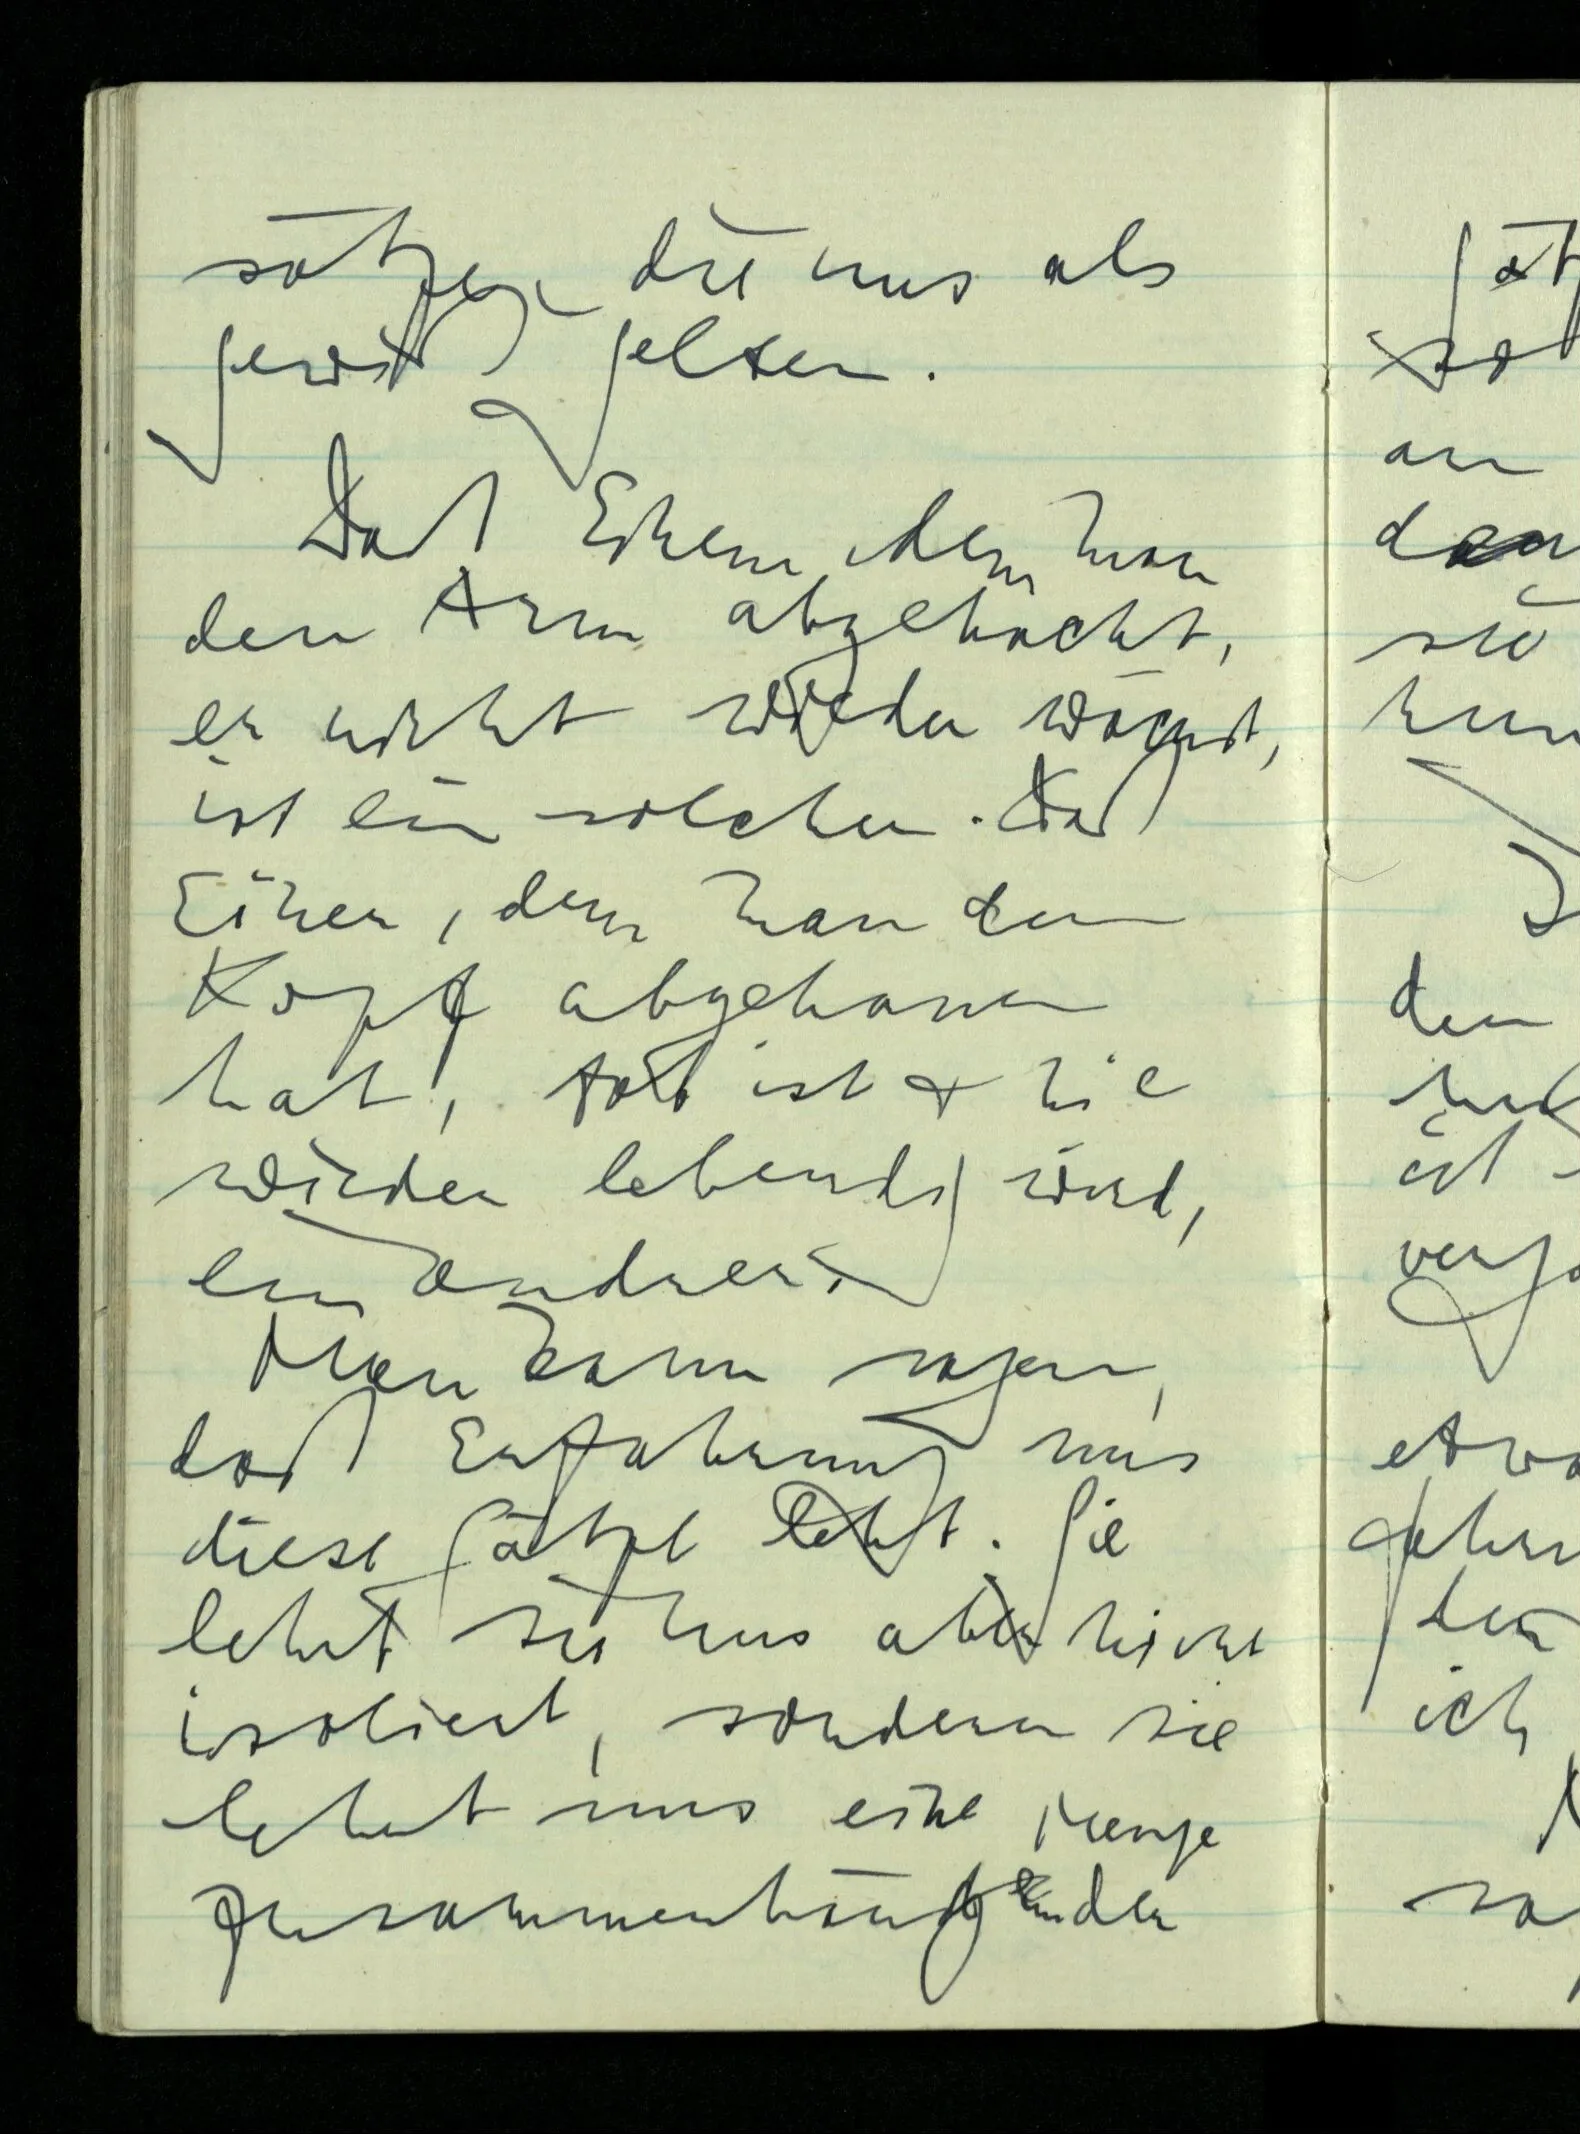 sätzen die uns als
gewiß gelten.
Daß Einem, dem man
den Arm abgehackt,
er nicht wieder wächst,
ist ein solcher. Daß
Einer, dem man den
Kopf abgehauen
hat, tot ist & nie
wieder lebendig wird,
ein andrer.
Man kann sagen,
daß Erfahrung uns
diese Sätze lehrt. Sie
lehrt sie uns aber nicht
isoliert, sondern sie
lehrt uns eine Menge
zusammenhängender
an
ist
ich